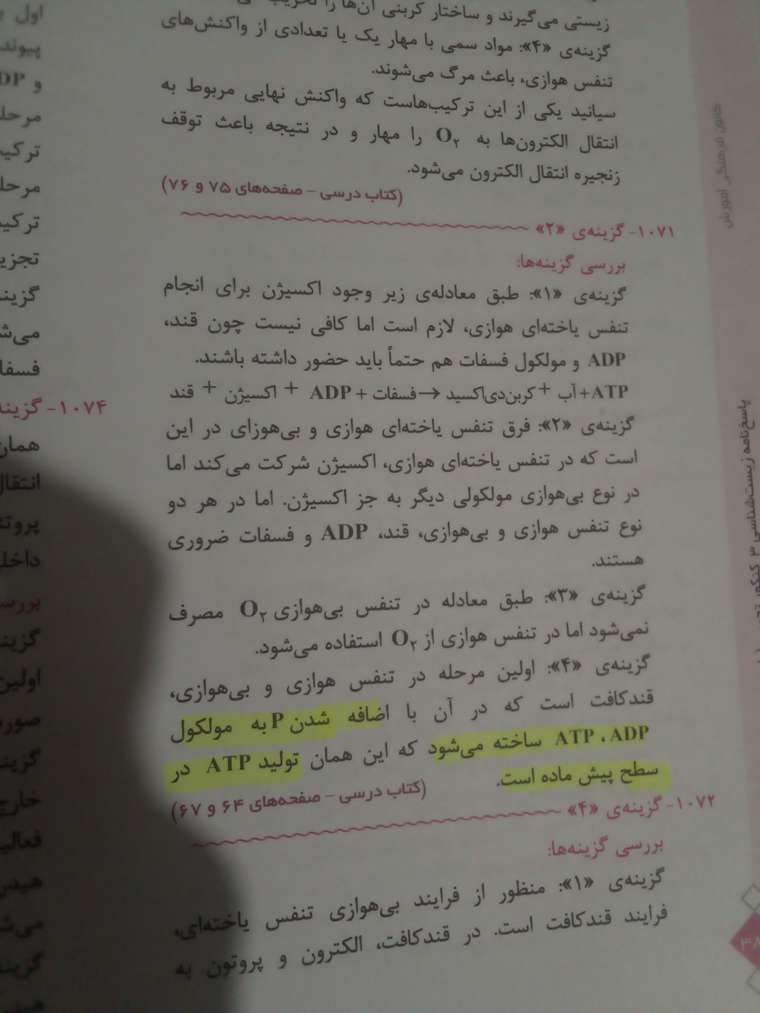 زیستی می‌گیرند و ساختار کربنی آن‌ها را
گزینه‌ی «۴»: مواد سمی با مهار یک یا تعدادی از واکنش‌های
تنفس هوازی، باعث مرگ می‌شوند.
سیانید یکی از این ترکیب‌هاست که واکنش نهایی مربوط به
انتقال الکترون‌ها به O₂ را مهار و در نتیجه باعث توقف
زنجیره انتقال الکترون می‌شود.
(کتاب درسی – صفحه‌های ۷۵ و ۷۶)
۱۰۷۱- گزینه‌ی «۲»
بررسی گزینه‌ها:
گزینه‌ی «۱»: طبق معادله‌ی زیر وجود اکسیژن برای انجام
تنفس یاخته‌ای هوازی، لازم است اما کافی نیست چون قند،
ADP و مولکول فسفات هم حتماً باید حضور داشته باشند.
ATP + آب + کربن‌دی‌اکسید → فسفات + ADP + اکسیژن + قند
گزینه‌ی «۲»: فرق تنفس یاخته‌ای هوازی و بی‌هوزای در این
است که در تنفس یاخته‌ای هوازی، اکسیژن شرکت می‌کند اما
در نوع بی‌هوازی مولکولی دیگر به جز اکسیژن. اما در هر دو
نوع تنفس هوازی و بی‌هوازی، قند، ADP و فسفات ضروری
هستند.
گزینه‌ی «۳»: طبق معادله در تنفس بی‌هوازی O₂ مصرف
نمی‌شود اما در تنفس هوازی از O₂ استفاده می‌شود.
گزینه‌ی «۴»: اولین مرحله در تنفس هوازی و بی‌هوازی،
قندکافت است که در آن با اضافه شدن P به مولکول
ADP، ATP ساخته می‌شود که این همان تولید ATP در
سطح پیش ماده است.
(کتاب درسی – صفحه‌های ۶۴ و ۶۷)
۱۰۷۲- گزینه‌ی «۴»
بررسی گزینه‌ها:
گزینه‌ی «۱»: منظور از فرایند بی‌هوازی تنفس یاخته‌ای،
فرایند قندکافت است. در قندکافت، الکترون و پروتون به
اول
پیوند
و
مرحله
مرحله
تجزیه
فسفا
۱۰۷۴- گزینه
همان
انتقال
داخل
اولین
خارج
کانون فرهنگی آموزش
پاسخ‌نامه زیست‌شناسی ۳ کنکور